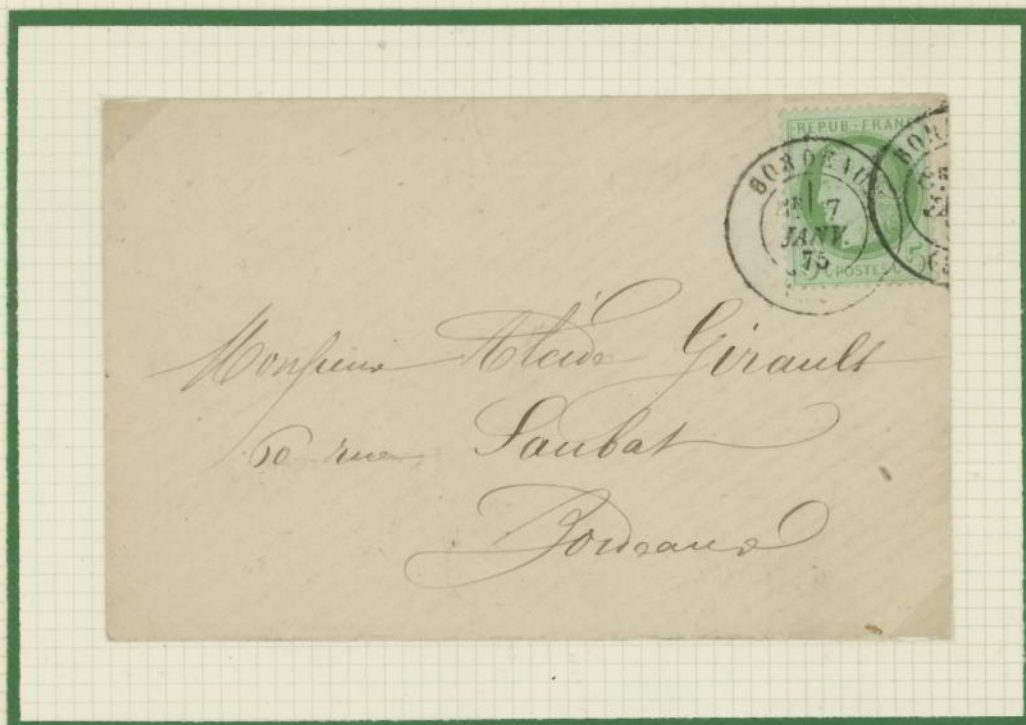 REPUB-FRANC
BORDEAUX
7
JANV.
75
BOR
5 C POSTES 5
Monsieur Alcide Girault
60 rue Saubat
Bordeaux